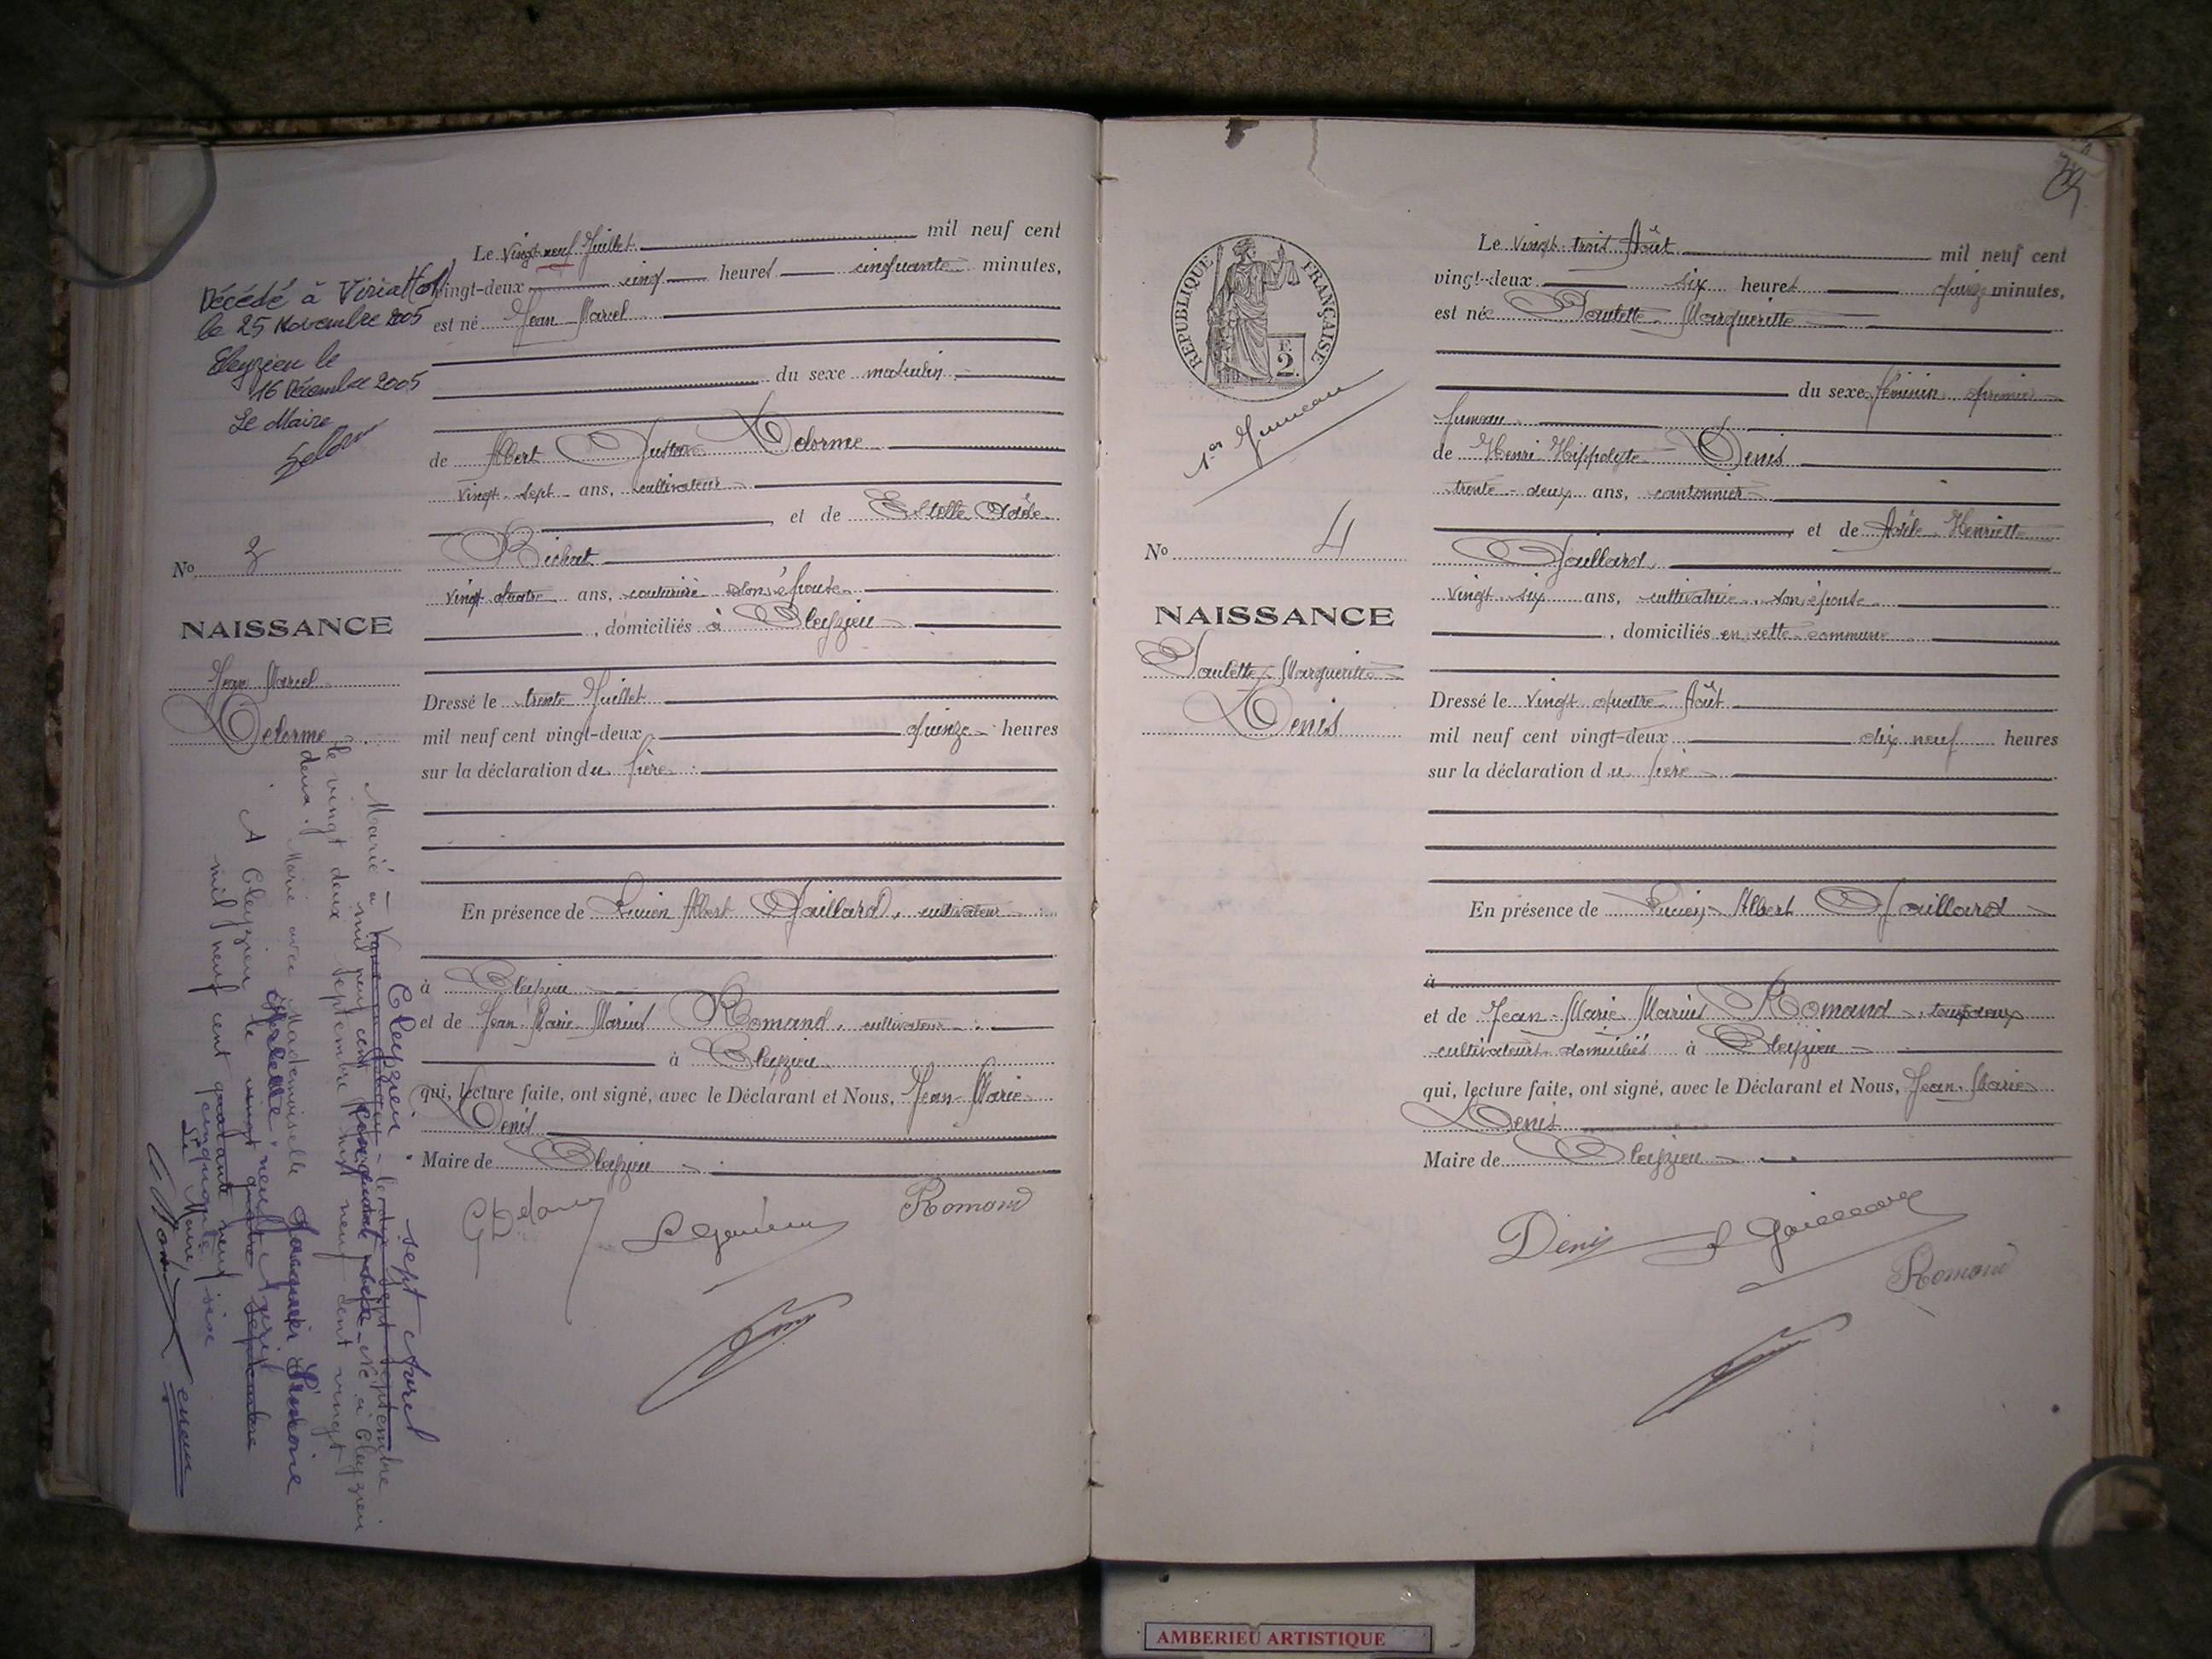 Le vingt neuf Juillet mil neuf cent
vingt-deux cinq heures cinquante minutes,
est né Jean Marcel
du sexe masculin
de Albert Delorme
vingt-sept ans, cultivateur
et de Estelle Adèle
Bichat
vingt quatre ans, couturière son épouse
, domiciliés à Cleyzieu
Dressé le trente Juillet
mil neuf cent vingt-deux, quinze heures
sur la déclaration du père
En présence de Lucien Albert Gaillard, cultivateur
à Cleyzieu
et de Jean Marie Marius Romand, cultivateur
à Cleyzieu
qui, lecture faite, ont signé, avec le Déclarant et Nous, Jean-Marie
Denis
Maire de Cleyzieu
Romand
Décédé à Viriat
le 25 Novembre 2005
Cleyzieu le
16 Décembre 2005
Le Maire
No 3
NAISSANCE
Jean Marcel
Delorme
Cleyzieu sept Avril
Marié à
mil neuf cent Né à Cleyzieu
le vingt deux septembre mil neuf cent vingt
deux. Marié avec Mademoiselle
A Cleyzieu le neuf Avril
mil neuf cent cinquante
Le Maire
RÉPUBLIQUE FRANÇAISE
F.
2.
1er Jumeau
No 4
NAISSANCE
Paulette Marguerite
Denis
Le vingt trois Août mil neuf cent
vingt-deux six heures quinze minutes,
est née Paulette Marguerite
du sexe féminin premier
jumeau
de Henri Hippolyte Denis
trente-deux ans, cantonnier
et de Adèle Henriette
Gaillard
vingt six ans, cultivatrice, son épouse
, domiciliés en cette commune
Dressé le vingt quatre Août
mil neuf cent vingt-deux dix neuf heures
sur la déclaration du père
En présence de Lucien Albert Gaillard
à
et de Jean-Marie Marius Romand, tous deux
cultivateurs domiciliés à Cleyzieu
qui, lecture faite, ont signé, avec le Déclarant et Nous, Jean-Marie
Denis
Maire de Cleyzieu
Denis
Gaillard
Romand
AMBERIEU ARTISTIQUE